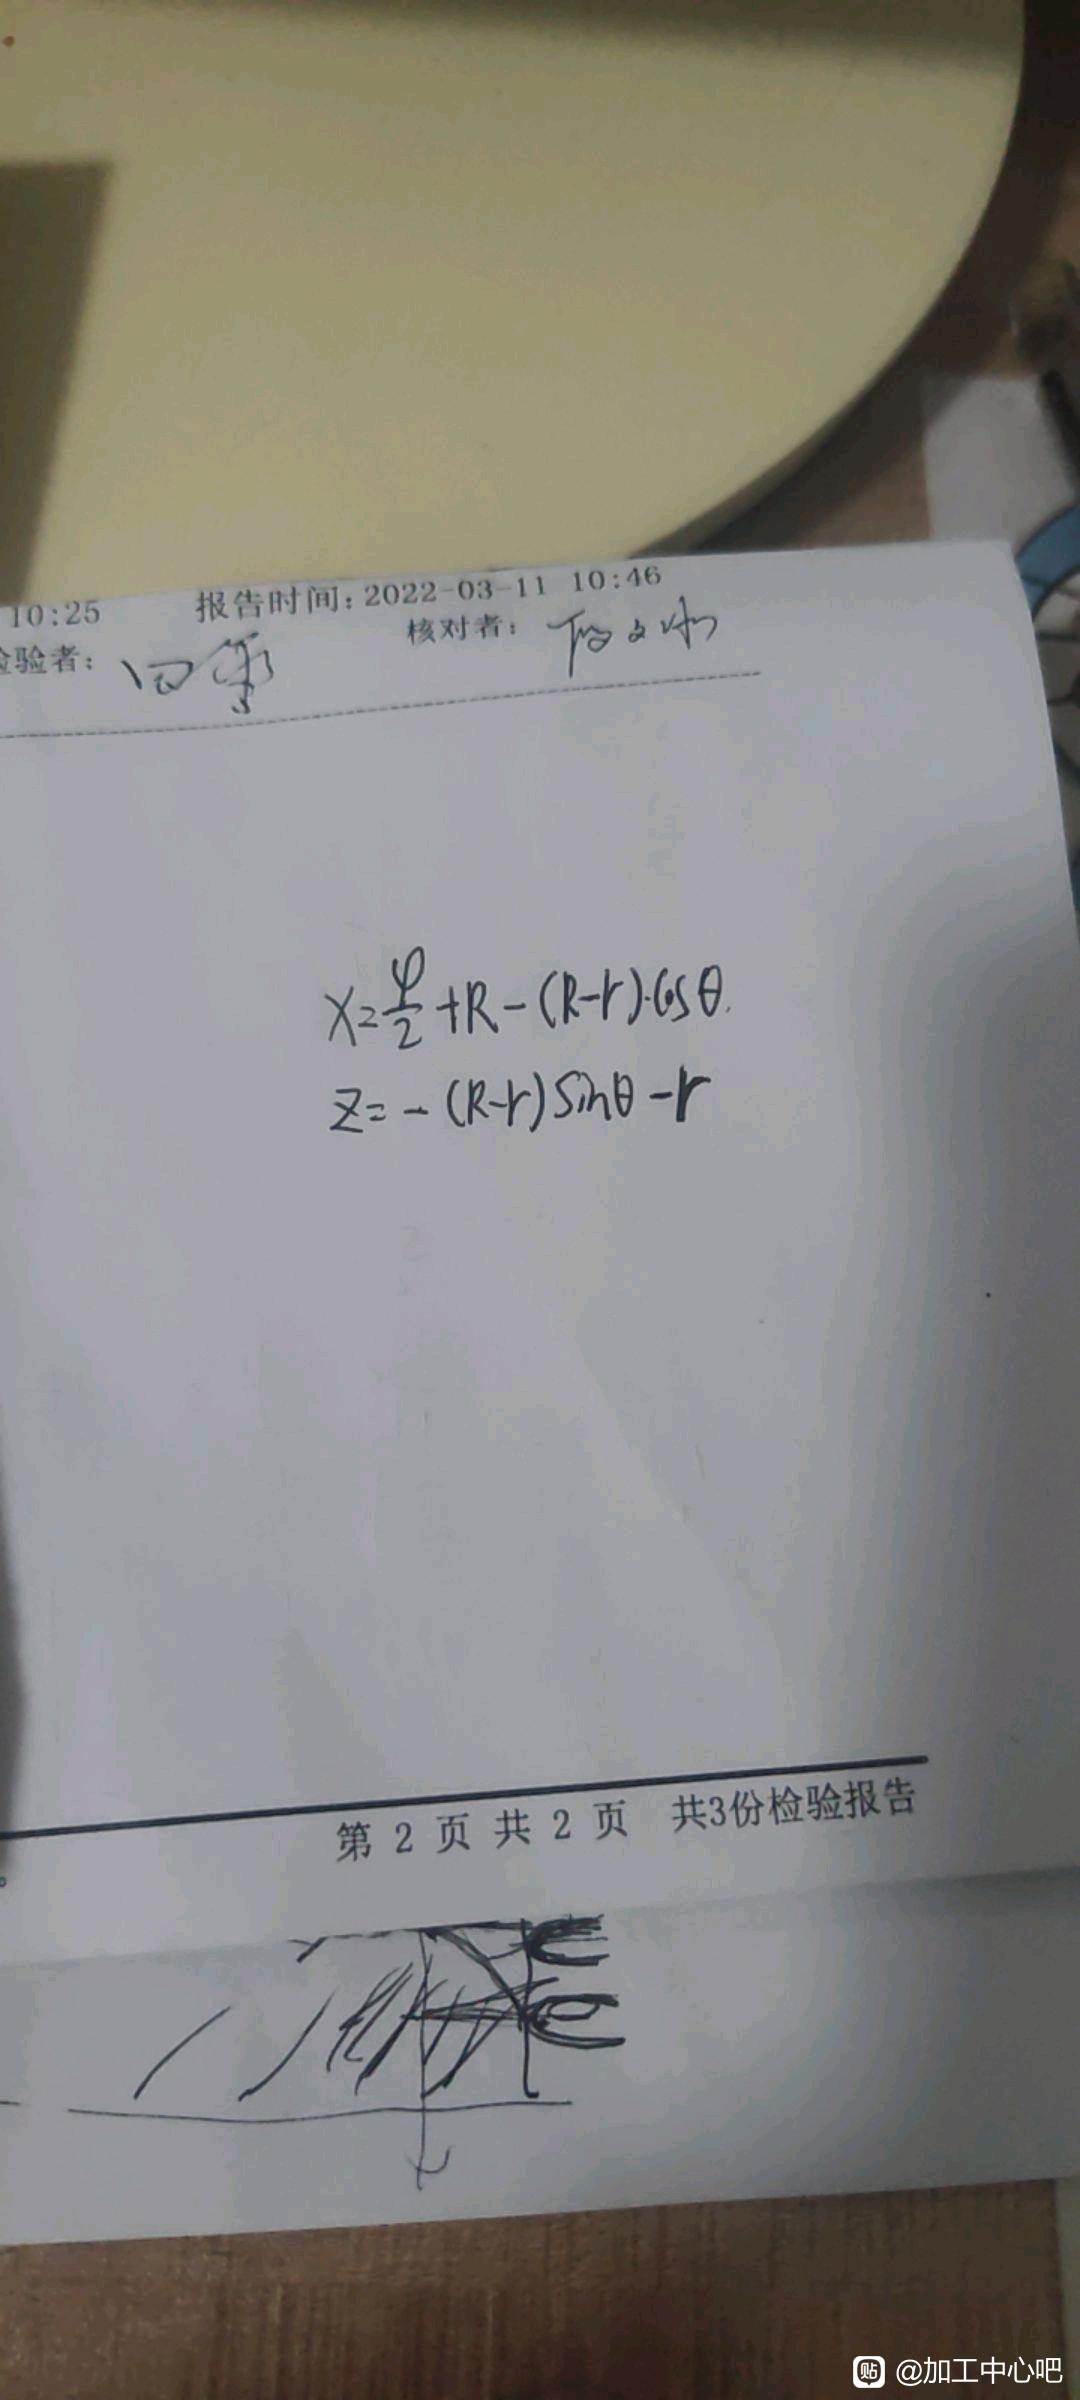 10:25 报告时间:2022-03-11 10:46
验者: 核对者:
X=φ/2+R-(R-r)·Cosθ.
Z=-(R-r)Sinθ-r
第 2 页 共 2 页 共3份检验报告
。
贴 @加工中心吧